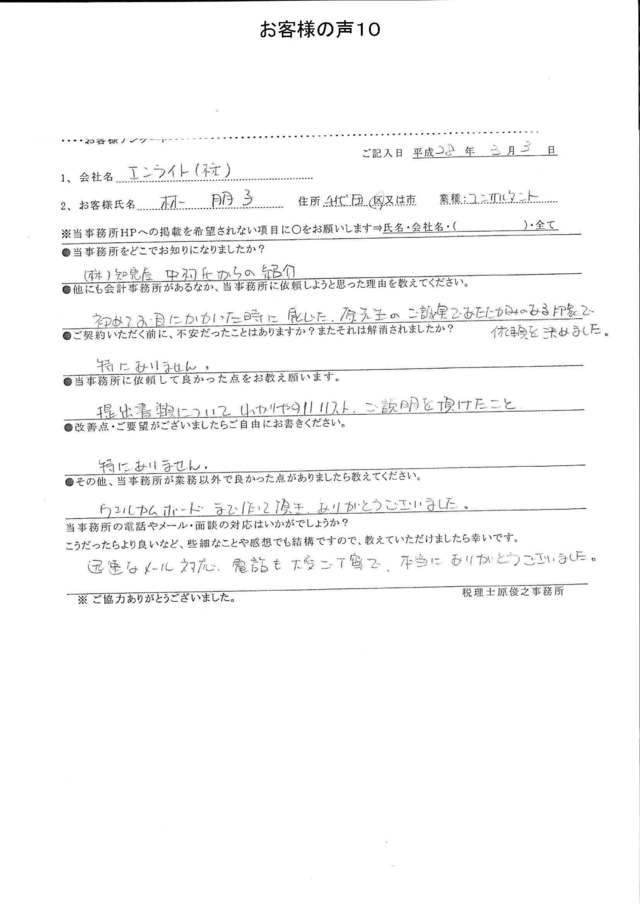 お客様の声10
お客様アンケート
ご記入日 平成 28 年 3 月 3 日
1、会社名 エンライト(株)
2、お客様氏名 林 朋子 住所 千代田 区又は市 業種:コンサルタント
※当事務所HPへの掲載を希望されない項目に○をお願いします⇒氏名・会社名・( )・全て
●当事務所をどこでお知りになりましたか?
(株)知財屋 中村氏からの紹介
●他にも会計事務所があるなか、当事務所に依頼しようと思った理由を教えてください。
初めてお目にかかった時に感じた、原先生のご誠実であたたかみのある印象で
依頼を決めました。
●ご契約いただく前に、不安だったことはありますか?またそれは解消されましたか?
特にありません。
●当事務所に依頼して良かった点をお教え願います。
提出書類についてわかりやすいリスト、ご説明を頂けたこと
●改善点・ご要望がございましたらご自由にお書きください。
特にありません。
●その他、当事務所が業務以外で良かった点がありましたら教えてください。
ウェルカムボードまで作って頂き、ありがとうございました。
当事務所の電話やメール・面談の対応はいかがでしょうか?
こうだったらより良いなど、些細なことや感想でも結構ですので、教えていただけましたら幸いです。
迅速なメール対応、電話も大変ご丁寧で、本当にありがとうございました。
※ ご協力ありがとうございました。 税理士原俊之事務所